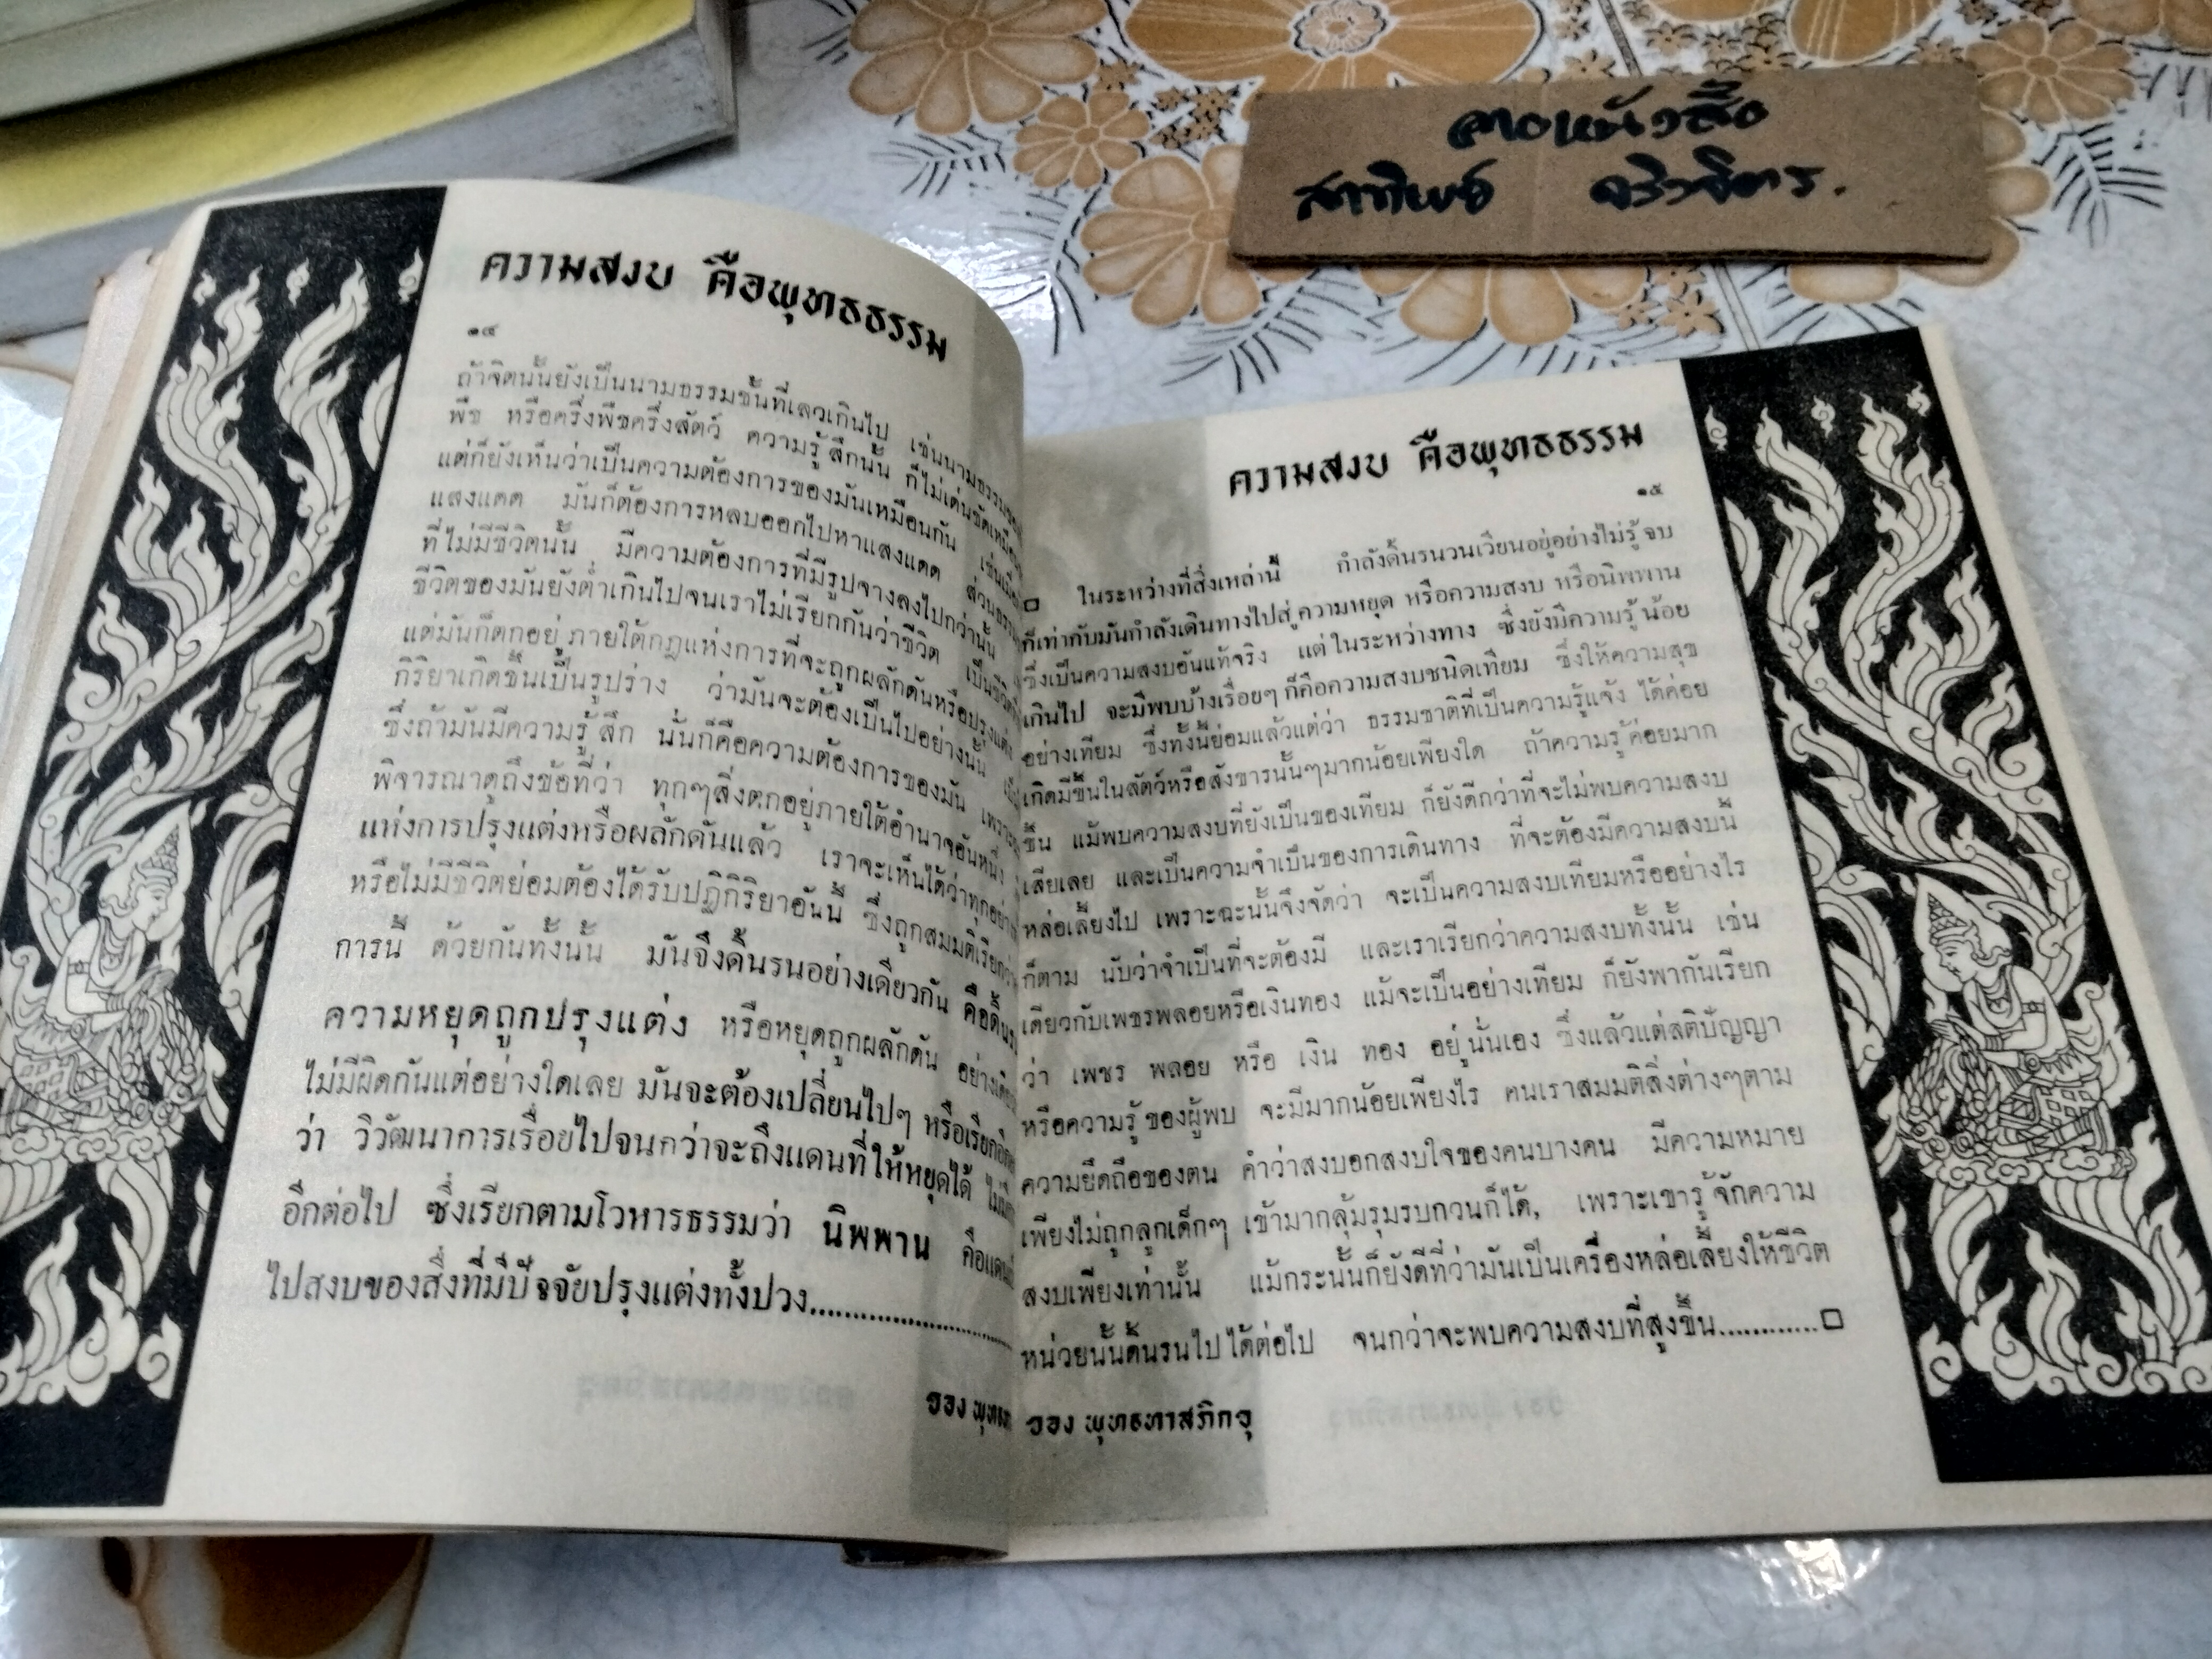 ความสงบ คือพุทธธรรม
๑๔
ถ้าจิตนั้นยังเป็นนามธรรมชั้นที่เลวเกินไป เช่นนามธรรมของ
พืช หรือครึ่งพืชครึ่งสัตว์ ความรู้สึกนั้น ก็ไม่เด่นชัดเหมือน
แต่ก็ยังเห็นว่าเป็นความต้องการของมันเหมือนกัน เช่นเมื่อ
แสงแดด มันก็ต้องการหลบออกไปหาแสงแดด ส่วน
ที่ไม่มีชีวิตนั้น มีความต้องการที่มีรูปจางลงไปกว่านั้น
ชีวิตของมันยังต่ำเกินไปจนเราไม่เรียกกันว่าชีวิต เป็นชีวิต
แต่มันก็ตกอยู่ภายใต้กฎแห่งการที่จะถูกผลักดันหรือปรุงแต่ง
กิริยาเกิดขึ้นเป็นรูปร่าง ว่ามันจะต้องเป็นไปอย่างนั้น
ซึ่งถ้ามันมีความรู้สึก นั่นก็คือความต้องการของมัน เพราะ
พิจารณาดูถึงข้อที่ว่า ทุกๆสิ่งตกอยู่ภายใต้อำนาจอันหนึ่ง
แห่งการปรุงแต่งหรือผลักดันแล้ว เราจะเห็นได้ว่าทุกอย่าง
หรือไม่มีชีวิตย่อมต้องได้รับปฏิกิริยาอันนี้ ซึ่งถูกสมมติเรียกว่า
การนี้ ด้วยกันทั้งนั้น มันจึงดิ้นรนอย่างเดียวกัน คือดิ้นรน
ความหยุดถูกปรุงแต่ง หรือหยุดถูกผลักดัน อย่างเดียว
ไม่มีผิดกันแต่อย่างใดเลย มันจะต้องเปลี่ยนไปๆ หรือเรียก
ว่า วิวัฒนาการเรื่อยไปจนกว่าจะถึงแดนที่ให้หยุดได้
อีกต่อไป ซึ่งเรียกตามโวหารธรรมว่า นิพพาน คือแดน
ไปสงบของสิ่งที่มีปัจจัยปรุงแต่งทั้งปวง...............................
ของ พุทธ
ความสงบ คือพุทธธรรม
๑๕
□ ในระหว่างที่สิ่งเหล่านี้ กำลังดิ้นรนวนเวียนอยู่อย่างไม่รู้จบ
ก็เท่ากับมันกำลังเดินทางไปสู่ความหยุด หรือความสงบ หรือนิพพาน
ซึ่งเป็นความสงบอันแท้จริง แต่ในระหว่างทาง ซึ่งยังมีความรู้น้อย
เกินไป จะมีพบบ้างเรื่อยๆ ก็คือความสงบชนิดเทียม ซึ่งให้ความสุข
อย่างเทียม ซึ่งทั้งนี้ย่อมแล้วแต่ว่า ธรรมชาติที่เป็นความรู้แจ้ง ได้ค่อย
เกิดมีขึ้นในสัตว์หรือสังขารนั้นๆมากน้อยเพียงใด ถ้าความรู้ค่อยมาก
ขึ้น แม้พบความสงบที่ยังเป็นของเทียม ก็ยังดีกว่าที่จะไม่พบความสงบ
เสียเลย และเป็นความจำเป็นของการเดินทาง ที่จะต้องมีความสงบนี้
หล่อเลี้ยงไป เพราะฉะนั้นจึงจัดว่า จะเป็นความสงบเทียมหรืออย่างไร
ก็ตาม นับว่าจำเป็นที่จะต้องมี และเราเรียกว่าความสงบทั้งนั้น เช่น
เดียวกับเพชรพลอยหรือเงินทอง แม้จะเป็นอย่างเทียม ก็ยังพากันเรียก
ว่า เพชร พลอย หรือ เงิน ทอง อยู่นั่นเอง ซึ่งแล้วแต่สติปัญญา
หรือความรู้ของผู้พบ จะมีมากน้อยเพียงไร คนเราสมมติสิ่งต่างๆตาม
ความยึดถือของตน คำว่าสงบอกสงบใจของคนบางคน มีความหมาย
เพียงไม่ถูกลูกเด็กๆ เข้ามากลุ้มรุมรบกวนก็ได้, เพราะเขารู้จักความ
สงบเพียงเท่านั้น แม้กระนั้นก็ยังดีที่ว่ามันเป็นเครื่องหล่อเลี้ยงให้ชีวิต
หน่วยนั้นดิ้นรนไปได้ต่อไป จนกว่าจะพบความสงบที่สูงขึ้น............□
ของ พุทธทาสภิกขุ